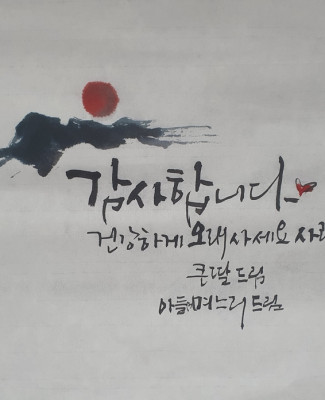 감사합니다
건강하게 오래 사세요
큰딸 드림
아들 며느리 드림